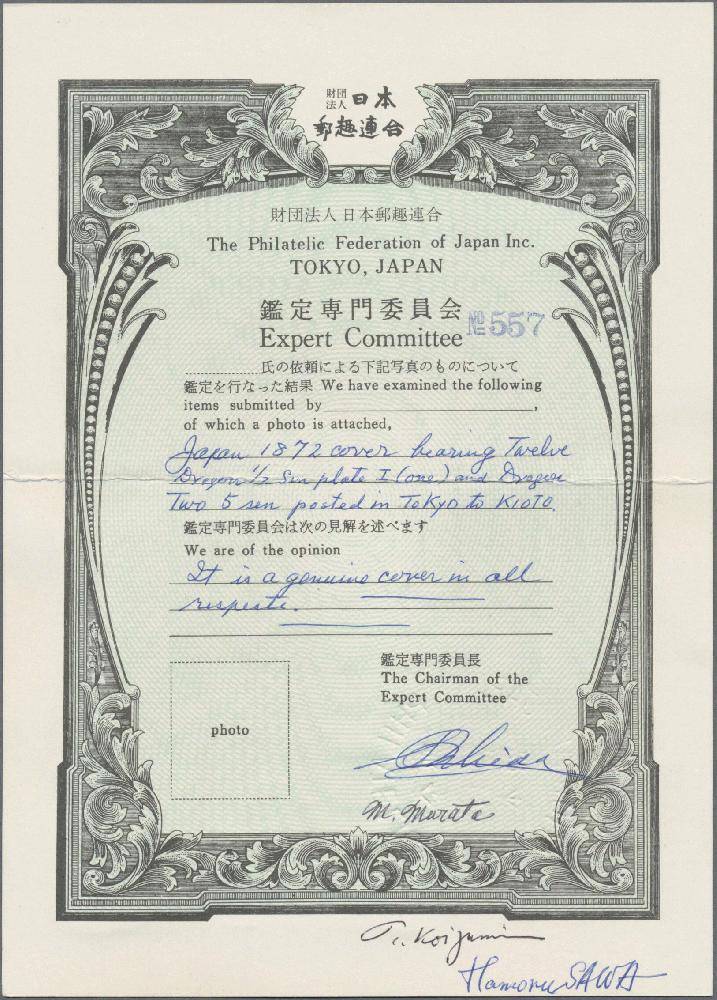 財団
法人 日本
郵趣連合
財団法人日本郵趣連合
The Philatelic Federation of Japan Inc.
TOKYO, JAPAN
鑑定専門委員会
Expert Committee № 557
氏の依頼による下記写真のものについて
鑑定を行なった結果 We have examined the following
items submitted by ,
of which a photo is attached,
Japan 1872 cover bearing Twelve
Dragon ½ Sen plate I (one) and Dragon
Two 5 sen posted in Tokyo to KIOTO.
鑑定専門委員会は次の見解を述べます
We are of the opinion
It is a genuine cover in all
respects.
鑑定専門委員長
The Chairman of the
Expert Committee
photo
M. Murata
T. Koizumi
SAWA